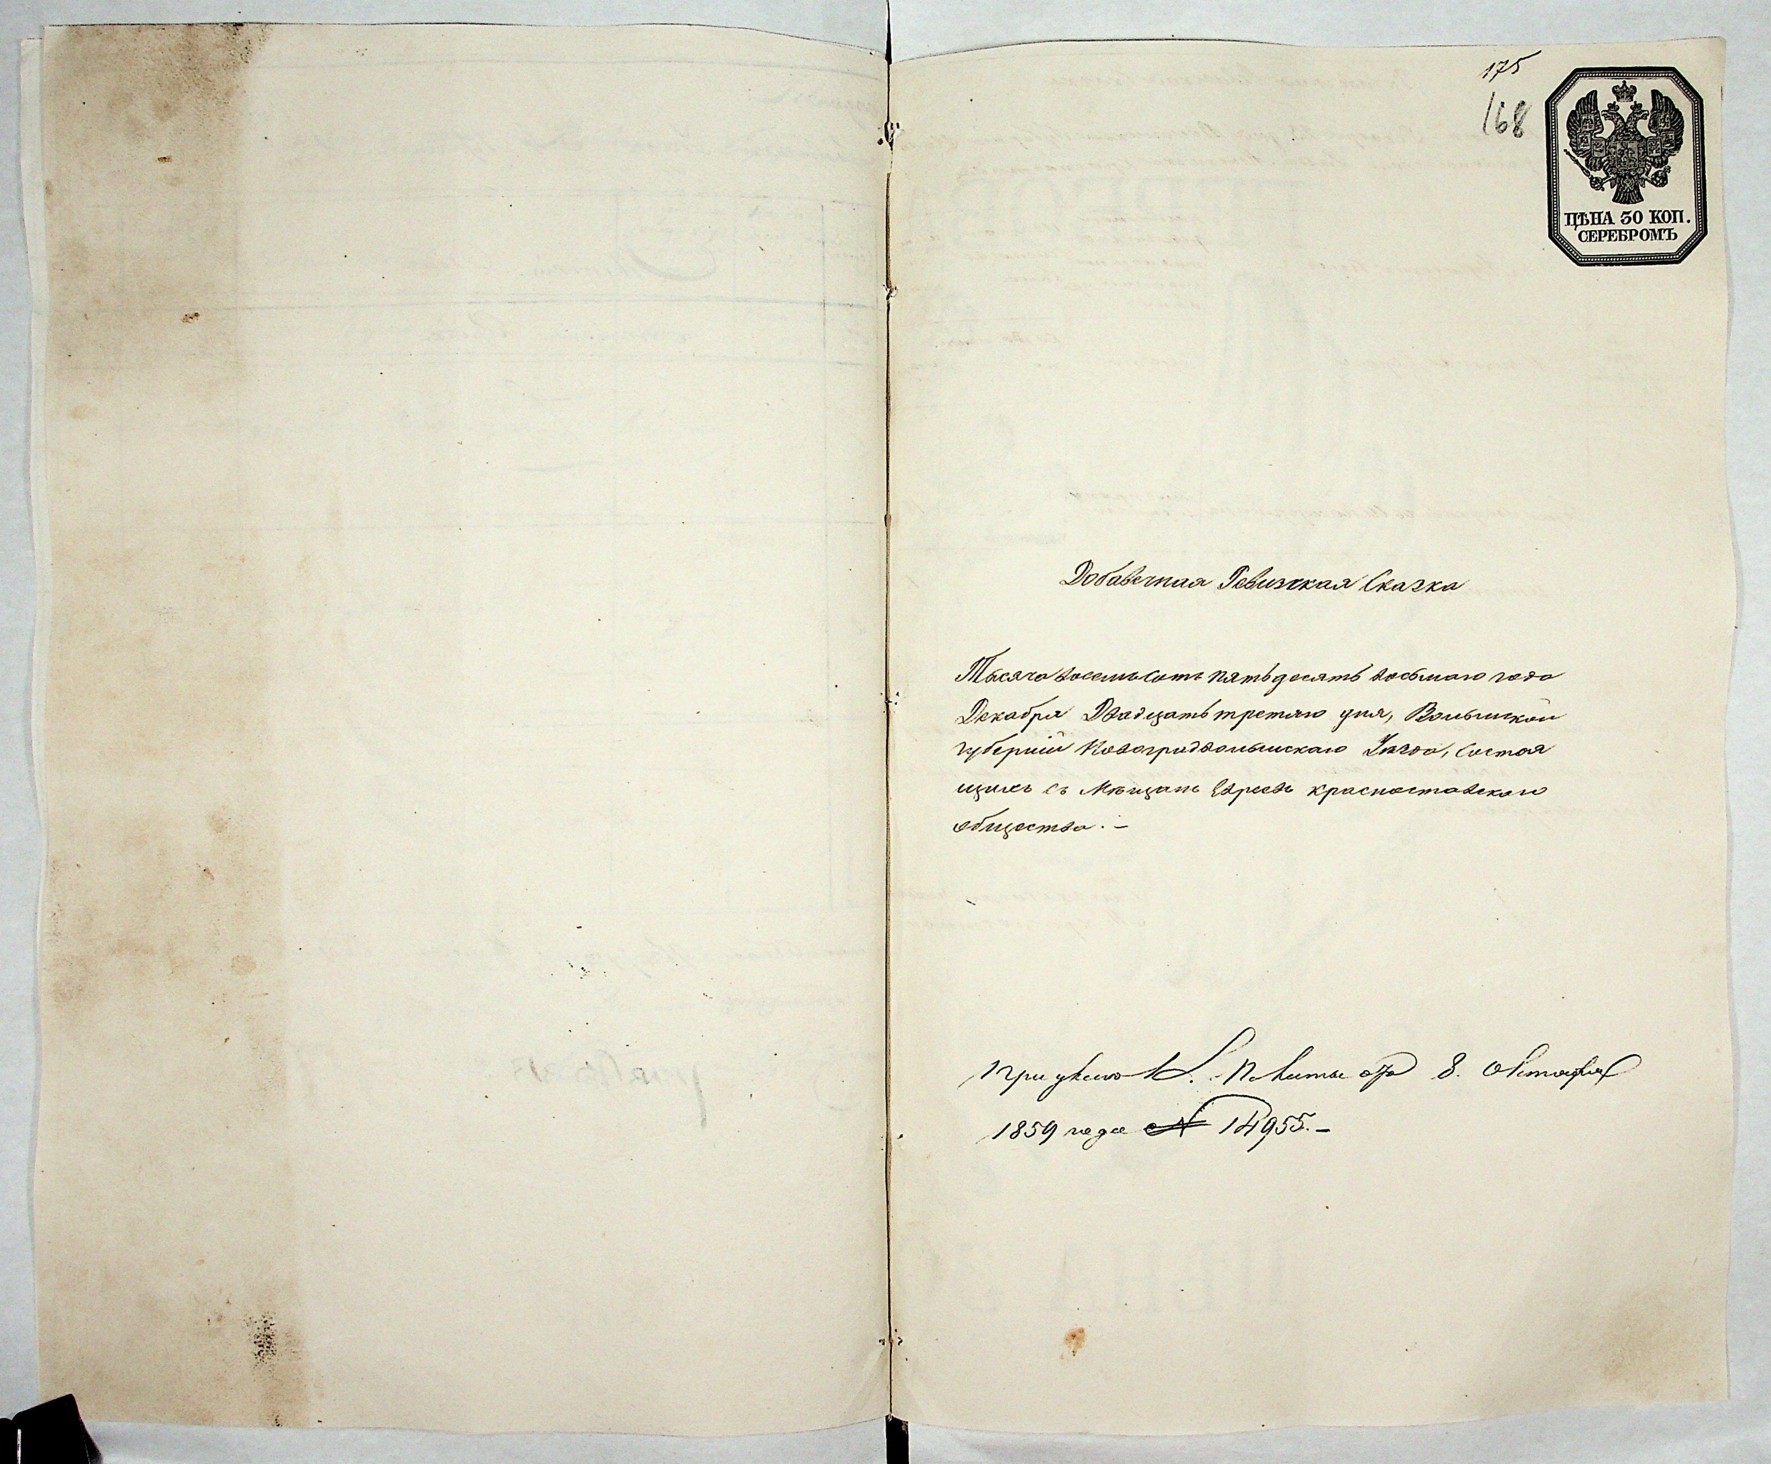 175
168
ЦѢНА 30 КОП.
СЕРЕБРОМЪ
Добавочная Ревизская Сказка
Тысяча восемьсотъ пятьдесятъ восьмаго года
Декабря Двадцать третяго дня, Волынской
губерніи Новоградволынскаго Уезда, состоя
щихъ съ Мѣщанъ Евреевъ красноставскаго
общества. –
При указѣ К. Палаты отъ 8. Октября
1859 года № 14955. –